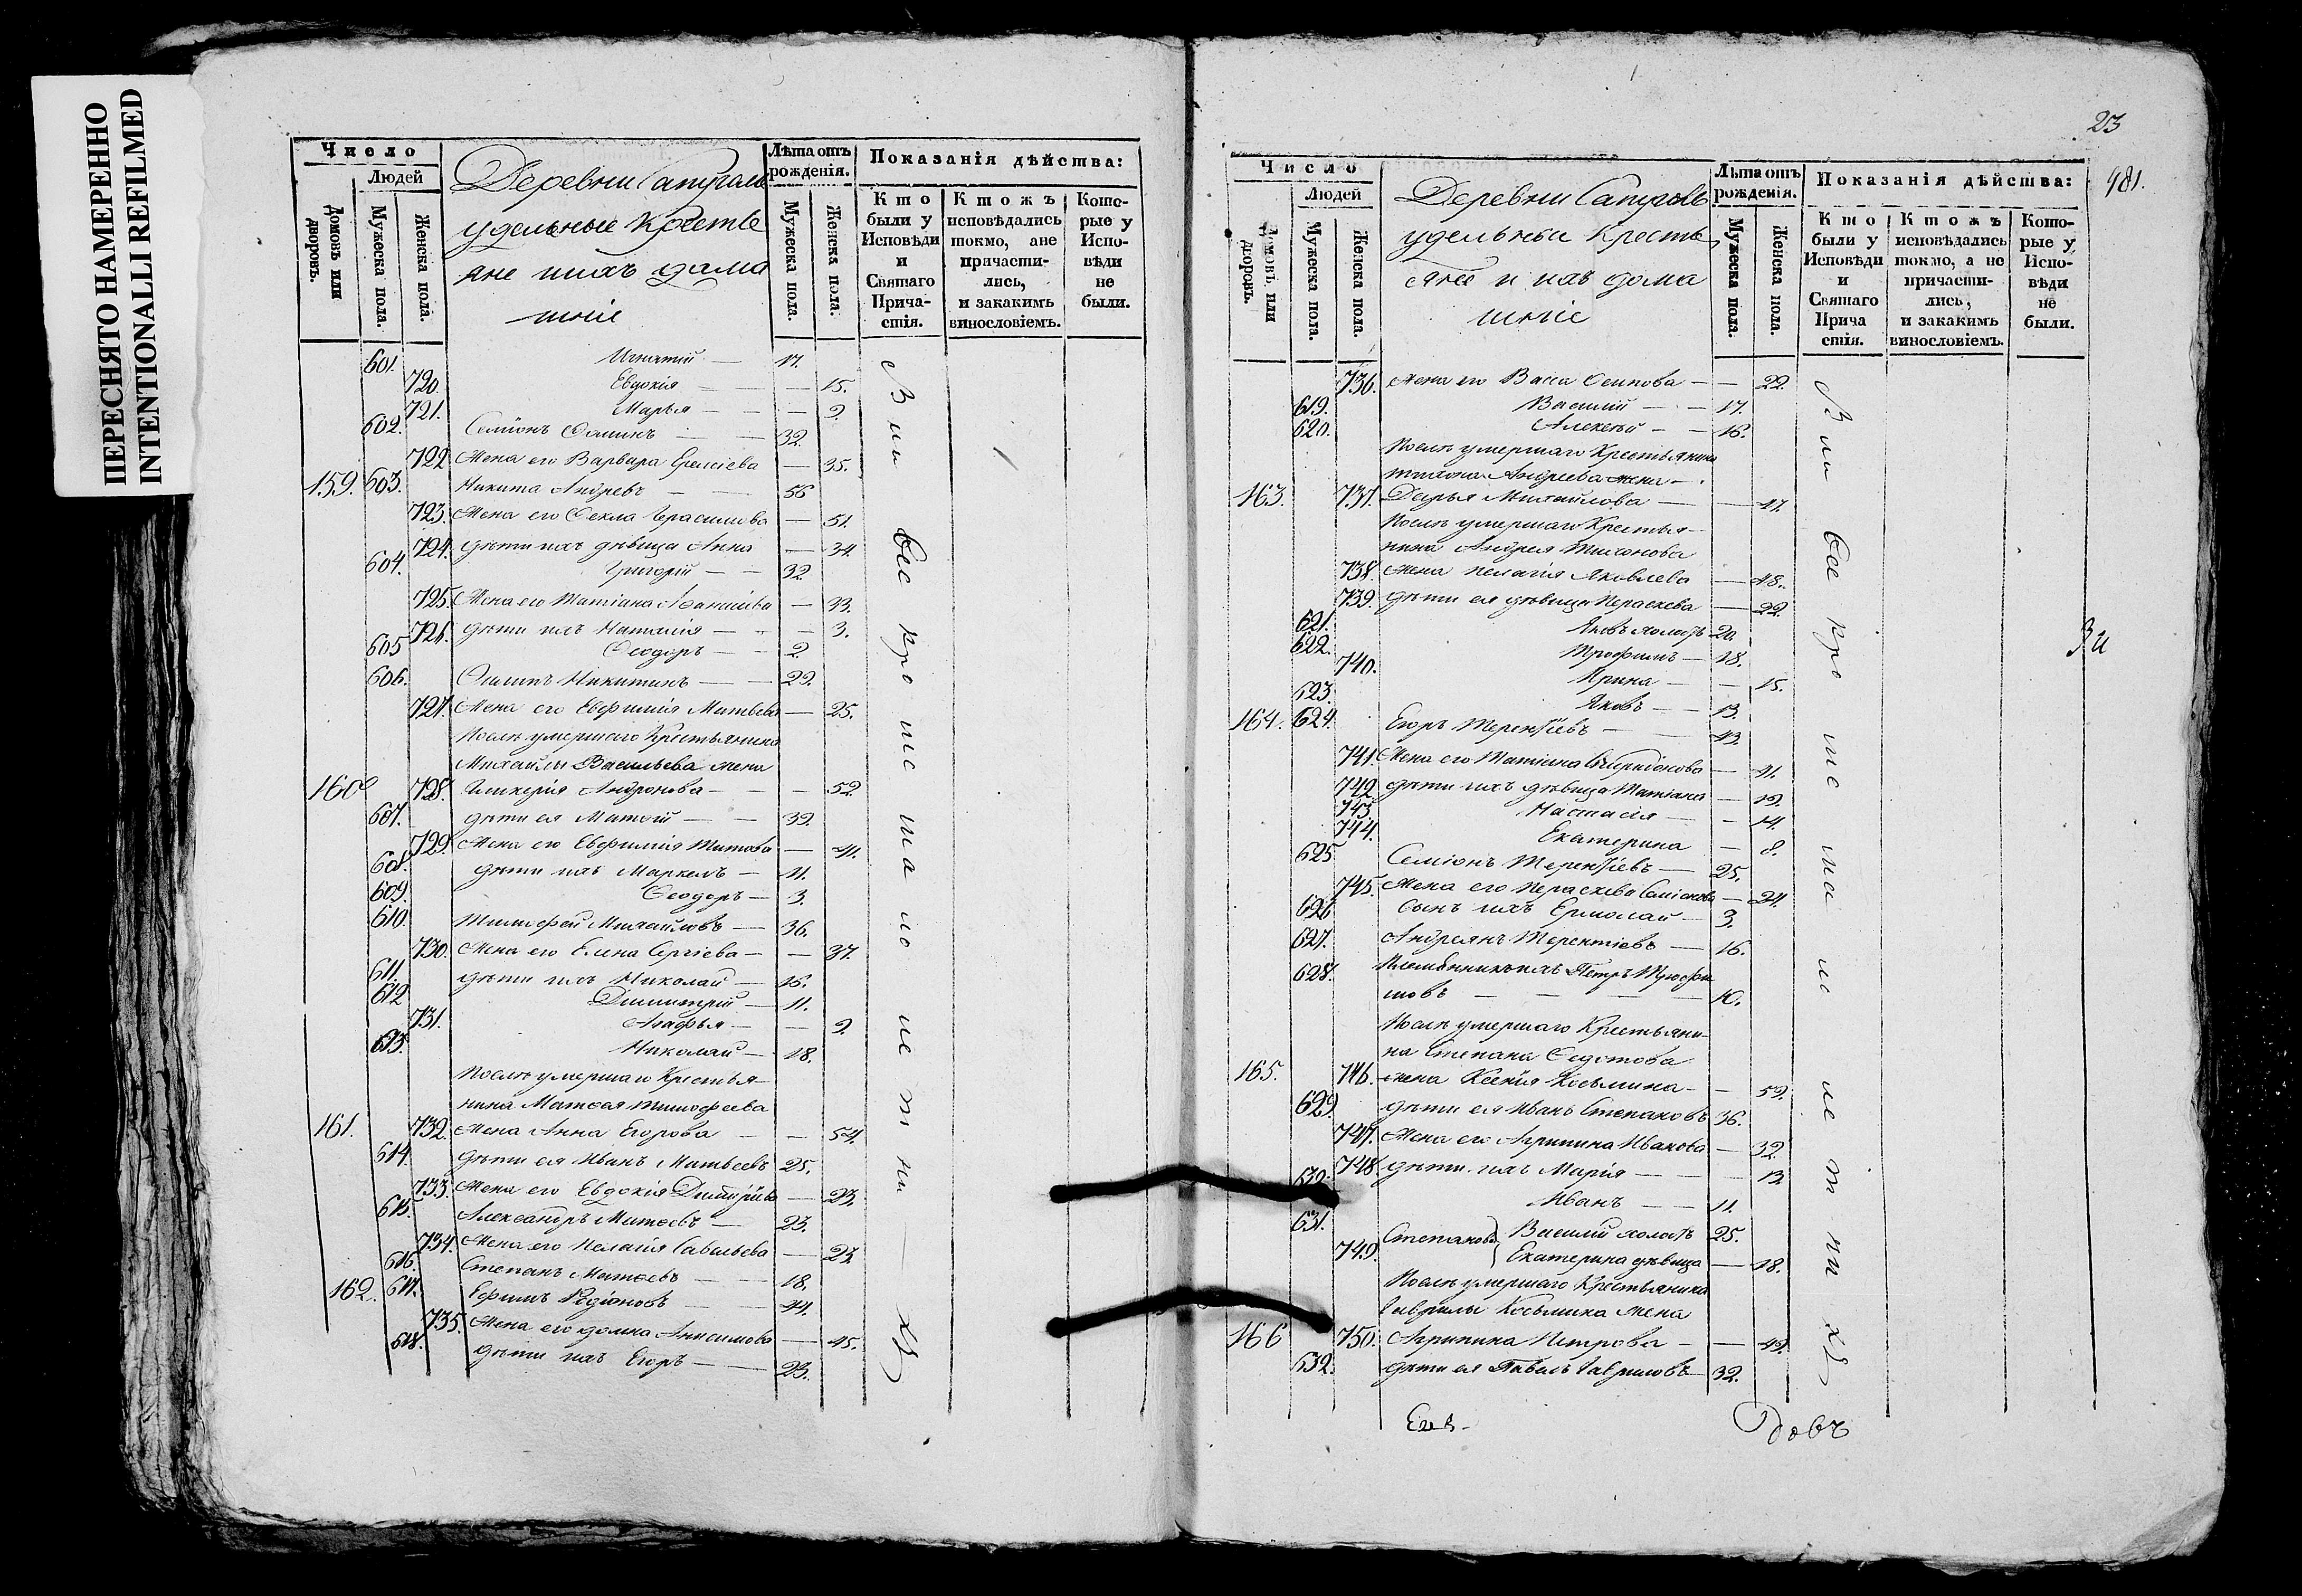 ПЕРЕСНЯТО НАМЕРЕННО
INTENTIONALLI REFILMED
Число
Людей
Домовъ или дворовъ.
Мужеска пола.
Женска пола.
Деревни
удельные Кресть
яне ихъ дома
шніе
Лѣта отъ рожденія.
Мужеска пола.
Женска пола.
Показанія дѣйства:
Кто были у Исповѣди и Святаго Прича-стія.
Ктожъ исповѣдались токмо, а не причасти-лись, и закакимъ винословіемъ.
Кото-рые у Испо-вѣди не были.
601. Игнатій — 17.
720. Евдокія — — 15.
721. Марья — — 9.
602. Семіонъ — 32.
722. Жена его Варвара — 35.
159. 603. Никита Андревъ — 56
723. Жена его Фекла Герасимова — 51.
724. дѣти ихъ дѣвица Анна — 34
604. Григорій — 32.
725. Жена его Татіана — 33.
726. дѣти ихъ Наталія — 3.
605 Феодоръ — 2.
606. Филипъ Никитинъ — 29.
727. Жена его Евфимія Матвѣева — 25.
Послѣ умершаго Крестьянина
Михайлы Васильева жена
160 728. Гликерія Андронова — 52.
607. дѣти ея — 39.
729. Жена его Евфимія Титова — 41.
608. дѣти ихъ Маркелъ — 11.
609. Феодоръ — 3.
610. Тимофей Михайловъ — 36.
730. Жена его Елена Сергіева — 37.
611. дѣти ихъ Николай — 16.
612 Димитрій — 11.
731. Агафья — — 9.
613. Николай — 18.
Послѣ умершаго Крестья-
нина Матвея Тимофеева
161. 732. Жена Анна Егорова — 54.
614. дѣти ея Иванъ Матвеевъ 25.
733. Жена его Евдокія — 23.
615. Александръ — 23.
734. Жена его Пелагія Савельева — 23.
616. Степанъ — 18.
162. 617. Ефимъ Родіоновъ — 44.
735. Жена его домна Анисимова — 45.
618. дѣти ихъ Егоръ — 23.
23
481.
Число
Людей
Домовъ или дворовъ.
Мужеска пола.
Женска пола.
Деревни
удельные Кресть
яне и ихъ дома
шніе
Лѣта отъ рожденія.
Мужеска пола.
Женска пола.
Показанія дѣйства:
Кто были у Исповѣди и Святаго Прича стія.
Ктожъ исповѣдались токмо, а не причасти-лись, и закакимъ винословіемъ.
Кото-рые у Испо-вѣди не были.
736. Жена его Васса Осипова — — 22.
619. Василій — 17.
620. Алексѣй — 16.
Послѣ умершаго Крестьянина
Андреева жена —
163. 737. Дарья Михайлова — 47.
Послѣ умершаго Крестья-
нина Андрея Тихонова
738. Жена Пелагія Яковлева — 48.
739. дѣти ея дѣвица Пераскева — 22.
621. Яковъ холостъ 20.
622. Трофимъ — 18.
740. Ирина — — 15.
623. Яковъ — 13.
164. 624. Егоръ Терентіевъ — 43.
741. Жена его Татіана — 41.
742. дѣти ихъ дѣвица Татіана — 19.
743. Настасія — — 14.
744. Екатерина — 8.
625 Семіонъ Терентіевъ — 25.
745. Жена его Пераскева Семіонова — 24.
626 Сынъ ихъ Ермолай — 3.
627. Андреянъ Терентіевъ — 16.
628. Племянникъ ихъ Петръ Трофи
мовъ — — — 10.
Послѣ умершаго Крестьяни-
на Степана Федотова
165. 746. жена Ксенія Косьмина — 59.
629 дѣти ея Иванъ Степановъ 36.
747. Жена его Агрипина Иванова — 32.
748. дѣти ихъ Марія — — 13.
630. Иванъ — 11.
631. Степанова Василій холостъ 25.
749. Екатерина дѣвица — 18.
Послѣ умершаго Крестьянина
Гаврилы Косьмина Жена
166 750. Агрипина Петрова — — 49.
632. дѣти ея Павелъ Гавриловъ 32.